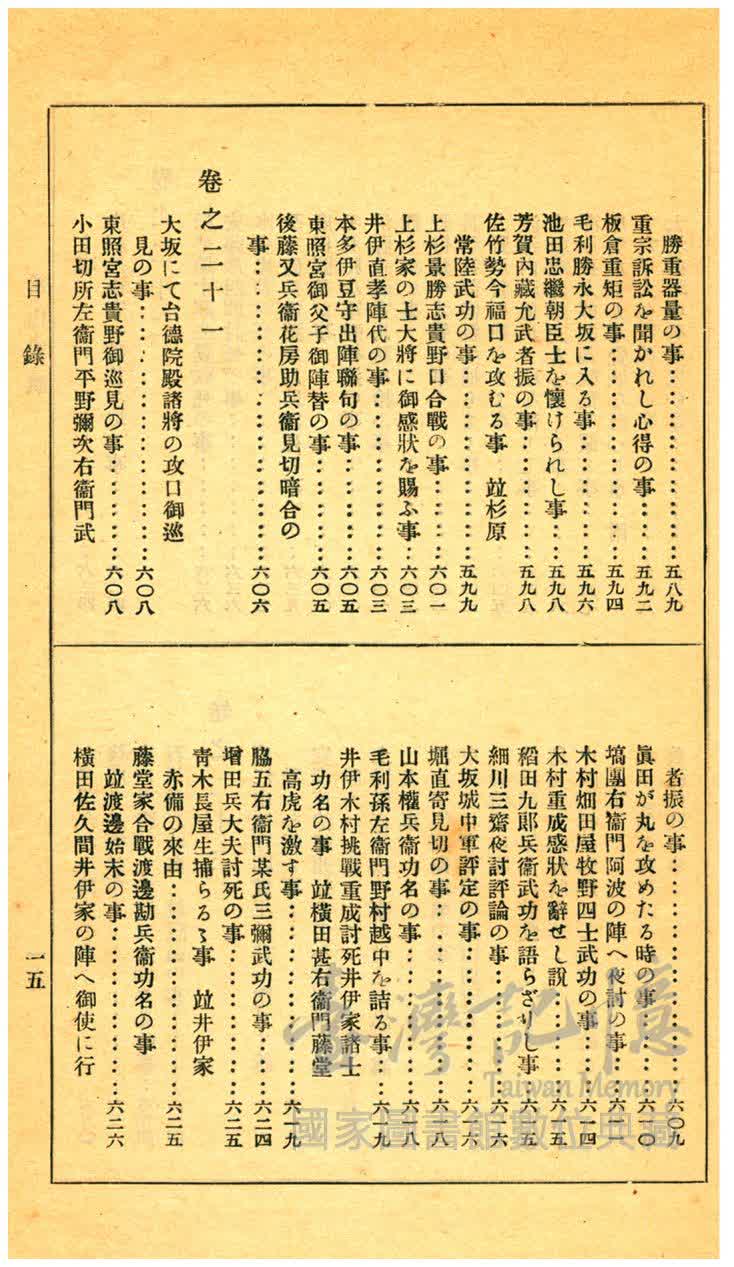 勝重器量の事……………………五八九
重宗訴訟を聞かれし心得の事……五九二
板倉重矩の事……………………五九四
毛利勝永大坂に入る事……………五九六
池田忠繼朝臣士を懷けられし事……五九八
芳賀內藏允武者振の事……………五九八
佐竹勢今福口を攻むる事　竝杉原
常陸武功の事……………………五九九
上杉景勝志貴野口合戰の事………六〇一
上杉家の士大將に御感狀を賜ふ事…六〇三
井伊直孝陣代の事…………………六〇三
本多伊豆守出陣聯句の事…………六〇五
東照宮御父子御陣替の事…………六〇五
後藤又兵衞花房助兵衞見切暗合の
事………………………………六〇六
卷之二十一
大坂にて台德院殿諸將の攻口御巡
見の事……………………………六〇八
東照宮志貴野御巡見の事…………六〇八
小田切所左衞門平野彌次右衞門武
者振の事…………………………六〇九
眞田が丸を攻めたる時の事………六一〇
塙團右衞門阿波の陣へ夜討の事……六一一
木村畑田屋牧野四士武功の事……六一四
木村重成感狀を辭せし說…………六一五
稻田九郞兵衞武功を語らざりし事…六一五
細川三齋夜討評論の事……………六一六
大坂城中軍評定の事………………六一六
堀直寄見切の事……………………六一八
山本權兵衞功名の事………………六一八
毛利孫左衞門野村越中を詰る事……六一九
井伊木村挑戰重成討死井伊家諸士
功名の事　竝橫田甚右衞門藤堂
高虎を激す事……………………六一九
脇五右衞門某氏三彌武功の事……六二四
增田兵大夫討死の事………………六二五
靑木長屋生捕らるゝ事　竝井伊家
赤備の來由………………………六二五
藤堂家合戰渡邊勘兵衞功名の事
竝渡邊始末の事…………………六二六
橫田佐久間井伊家の陣へ御使に行
目錄
一五
臺灣記憶
Taiwan Memory
國家圖書館數位典藏